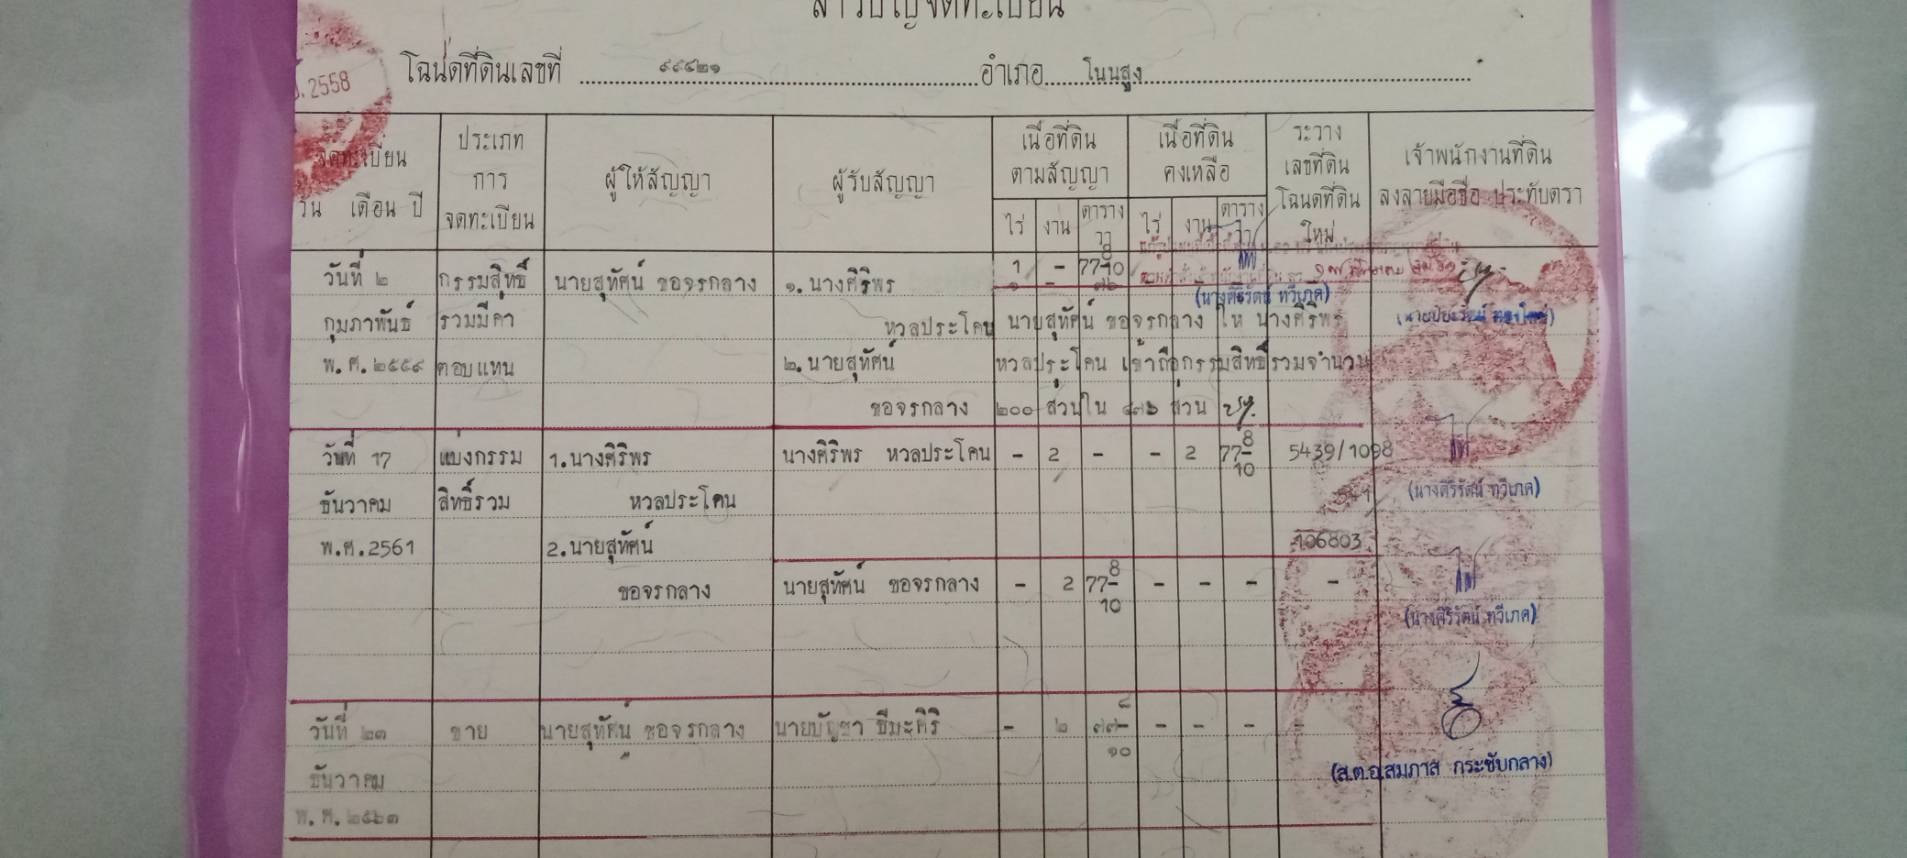 สารบัญจดทะเบียน
โฉนดที่ดินเลขที่ ๙๙๔๒๑ อำเภอ โนนสูง
2558
จดทะเบียน
วัน เดือน ปี
ประเภท
การ
จดทะเบียน
ผู้ให้สัญญา
ผู้รับสัญญา
เนื้อที่ดิน
ตามสัญญา
ไร่ งาน ตาราง
วา
เนื้อที่ดิน
คงเหลือ
ไร่ งาน ตาราง
วา
ระวาง
เลขที่ดิน
โฉนดที่ดิน
ใหม่
เจ้าพนักงานที่ดิน
ลงลายมือชื่อ ประทับตรา
วันที่ ๒ กรรมสิทธิ์ นายสุทัศน์ ขอจรกลาง ๑. นางศิริพร 1 - 77 8/10
(นางศิริรัตน์ ทวีเภค)
กุมภาพันธ์ รวมมีค่า หวลประโคน นายสุทัศน์ ขอจรกลาง ให้ นางศิริพร
พ.ศ.๒๕๕๙ ตอบแทน ๒. นายสุทัศน์ หวลประโคน เข้าถือกรรมสิทธิ์รวมจำนวน
ขอจรกลาง ๒๐๐ ส่วนใน ๔๗๖ ส่วน
วันที่ 17 แบ่งกรรม 1.นางศิริพร นางศิริพร หวลประโคน - 2 - - 2 77 8/10 5439/1098
ธันวาคม สิทธิ์รวม หวลประโคน (นางศิริรัตน์ ทวีเภค)
พ.ศ.2561 2.นายสุทัศน์ 106803
ขอจรกลาง นายสุทัศน์ ขอจรกลาง - 2 77 8/10 - - - -
(นางศิริรัตน์ ทวีเภค)
วันที่ ๒๓ ขาย นายสุทัศน์ ขอจรกลาง นายบัญชา ชีมะศิริ - ๒ ๗๗ ๘/๑๐ - - - -
ธันวาคม (ส.ต.อ.สมภาส กระชับกลาง)
พ.ศ.๒๕๖๓